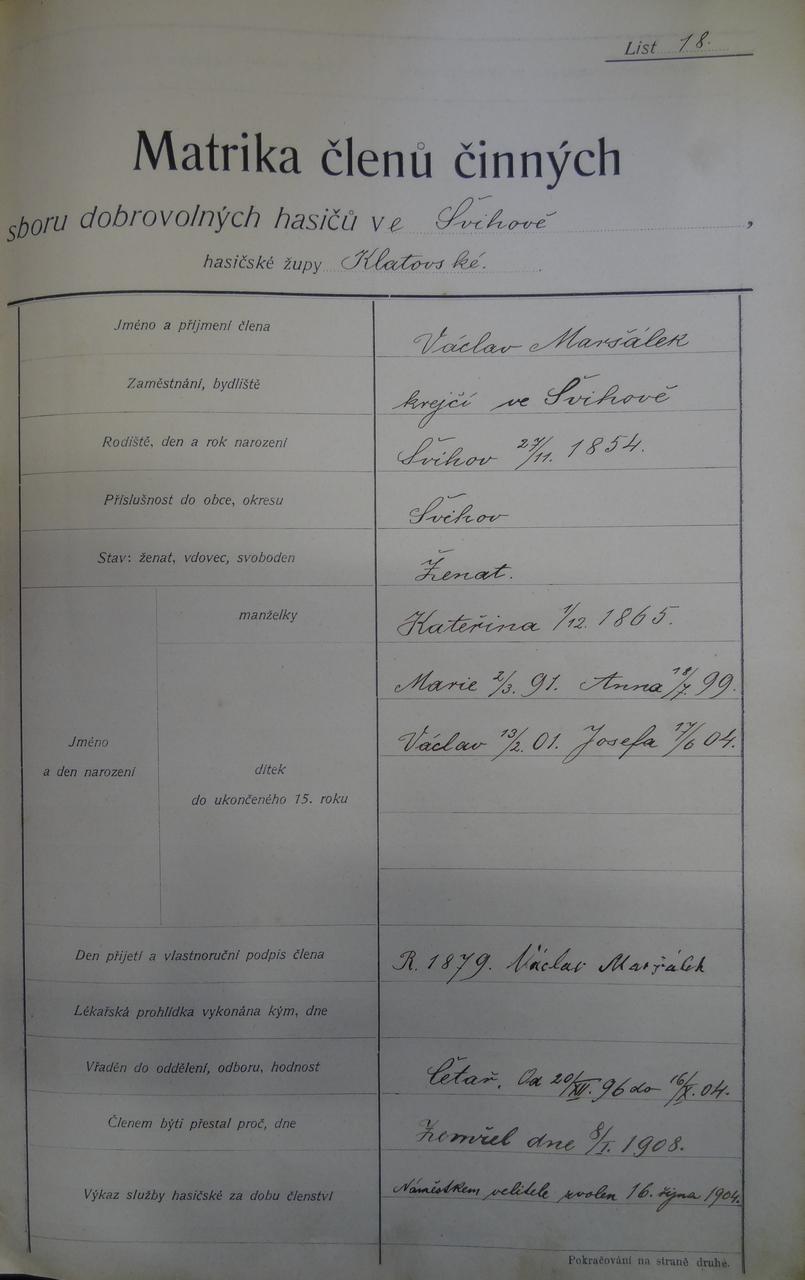 List 18.
Matrika členů činných
sboru dobrovolných hasičů ve Švihově,
hasičské župy Klatovské.
Jméno a příjmení člena Václav Maršálek
Zaměstnání, bydliště krejčí ve Švihově
Rodiště, den a rok narození Švihov 27/11. 1854.
Příslušnost do obce, okresu Švihov
Stav: ženat, vdovec, svoboden Ženat.
manželky Kateřina 1/12. 1865.
Marie 2/3. 91. Anna 18/7. 99.
Jméno Václav 13/2. 01. Josefa 17/6 04.
a den narození dítek
do ukončeného 15. roku
Den přijetí a vlastnoruční podpis člena R. 1879. Václav Maršálek
Lékařská prohlídka vykonána kým, dne
Vřaděn do oddělení, odboru, hodnost Četař. Od 20/XII. 96 do 16/X. 04.
Členem býti přestal proč, dne Zemřel dne 8/I. 1908.
Výkaz služby hasičské za dobu členství Náměstkem velitele zvolen 16. října 1904.
Pokračování na straně druhé.